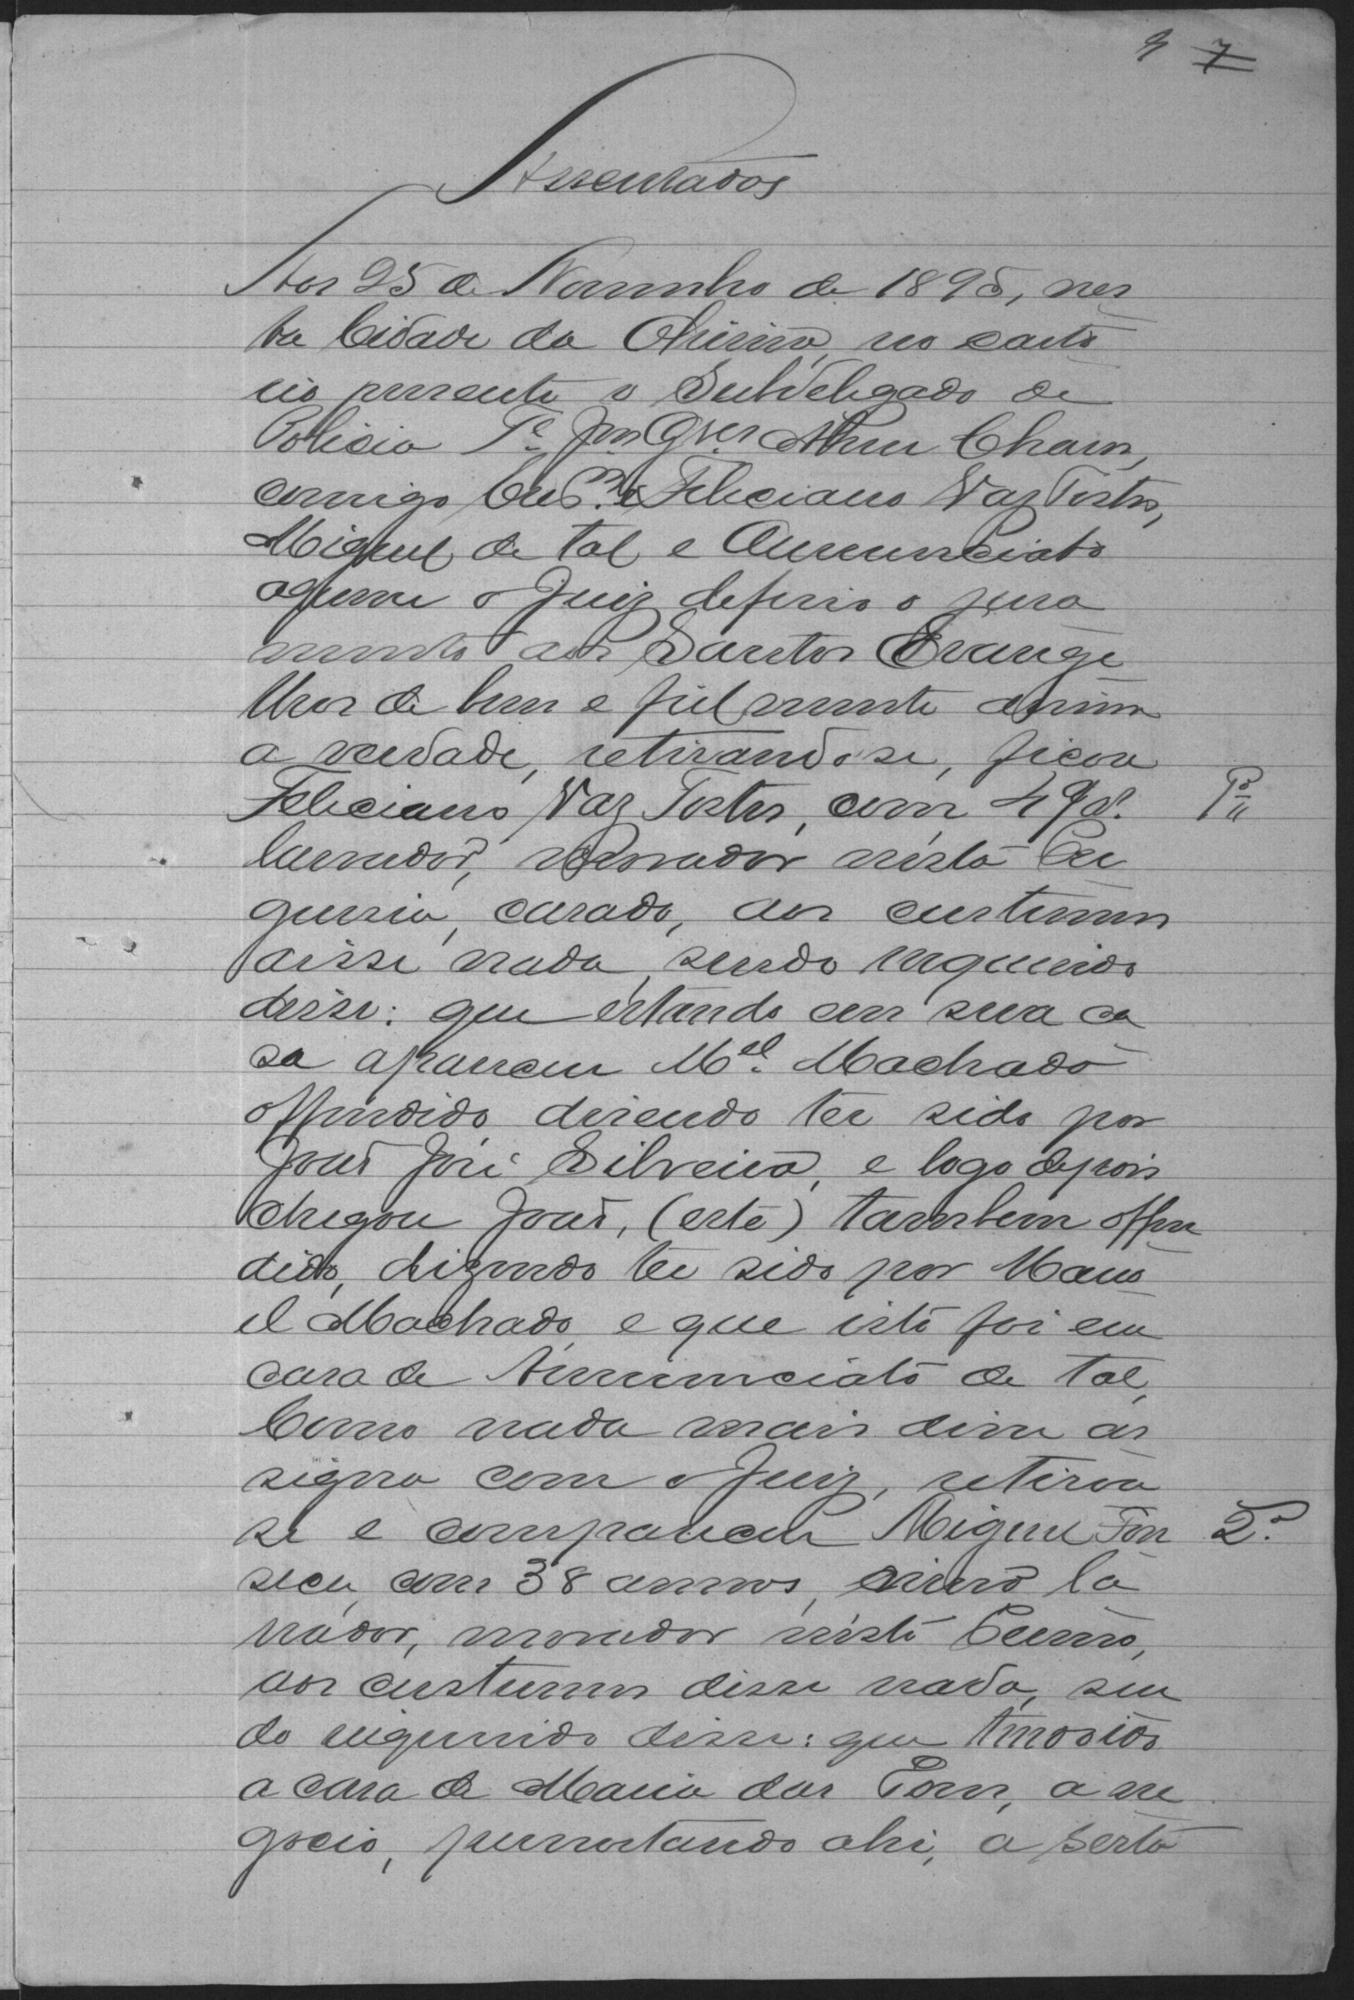 9 7
Assentados
Aos 25 de Novembro de 1895, nes
ta Cidade da Oliveira, no carto
rio presente o Subdelegado de
Policia Te. Jm. Gver. Chaves,
comigo Feliciano Vaz Tostes,
Miguel de tal e Annunciato
aquem o Juiz deferio o jura
mento aos Santos Evange
lhos de bem e fielmente dizerem
a verdade, retirando se, ficou
Feliciano Vaz Tostes, com 49 as. 1ª
lavrador, morador nesta fre
guesia, casado, aos custumes
disse nada, sendo inquerido
disse: que estando em sua ca
sa apareceu Mel. Machado
offendido disendo ter sido por
João José Silveira, e logo depois
chegou João, (este) tambem offen
dido, dizendo ter sido por Mano
el Machado, e que isto foi em
casa de Annunciato de tal,
Como nada mais disse as
signa com o Juiz, retirou
se e compareceu Miguel Fon 2ª
seca, com 38 annos, la
vrador, morador neste
aos custumes disse nada, sen
do inquerido disse: que tendo ido
a casa de Maria das, a ne
gocio, pernoitando ahi, a serta